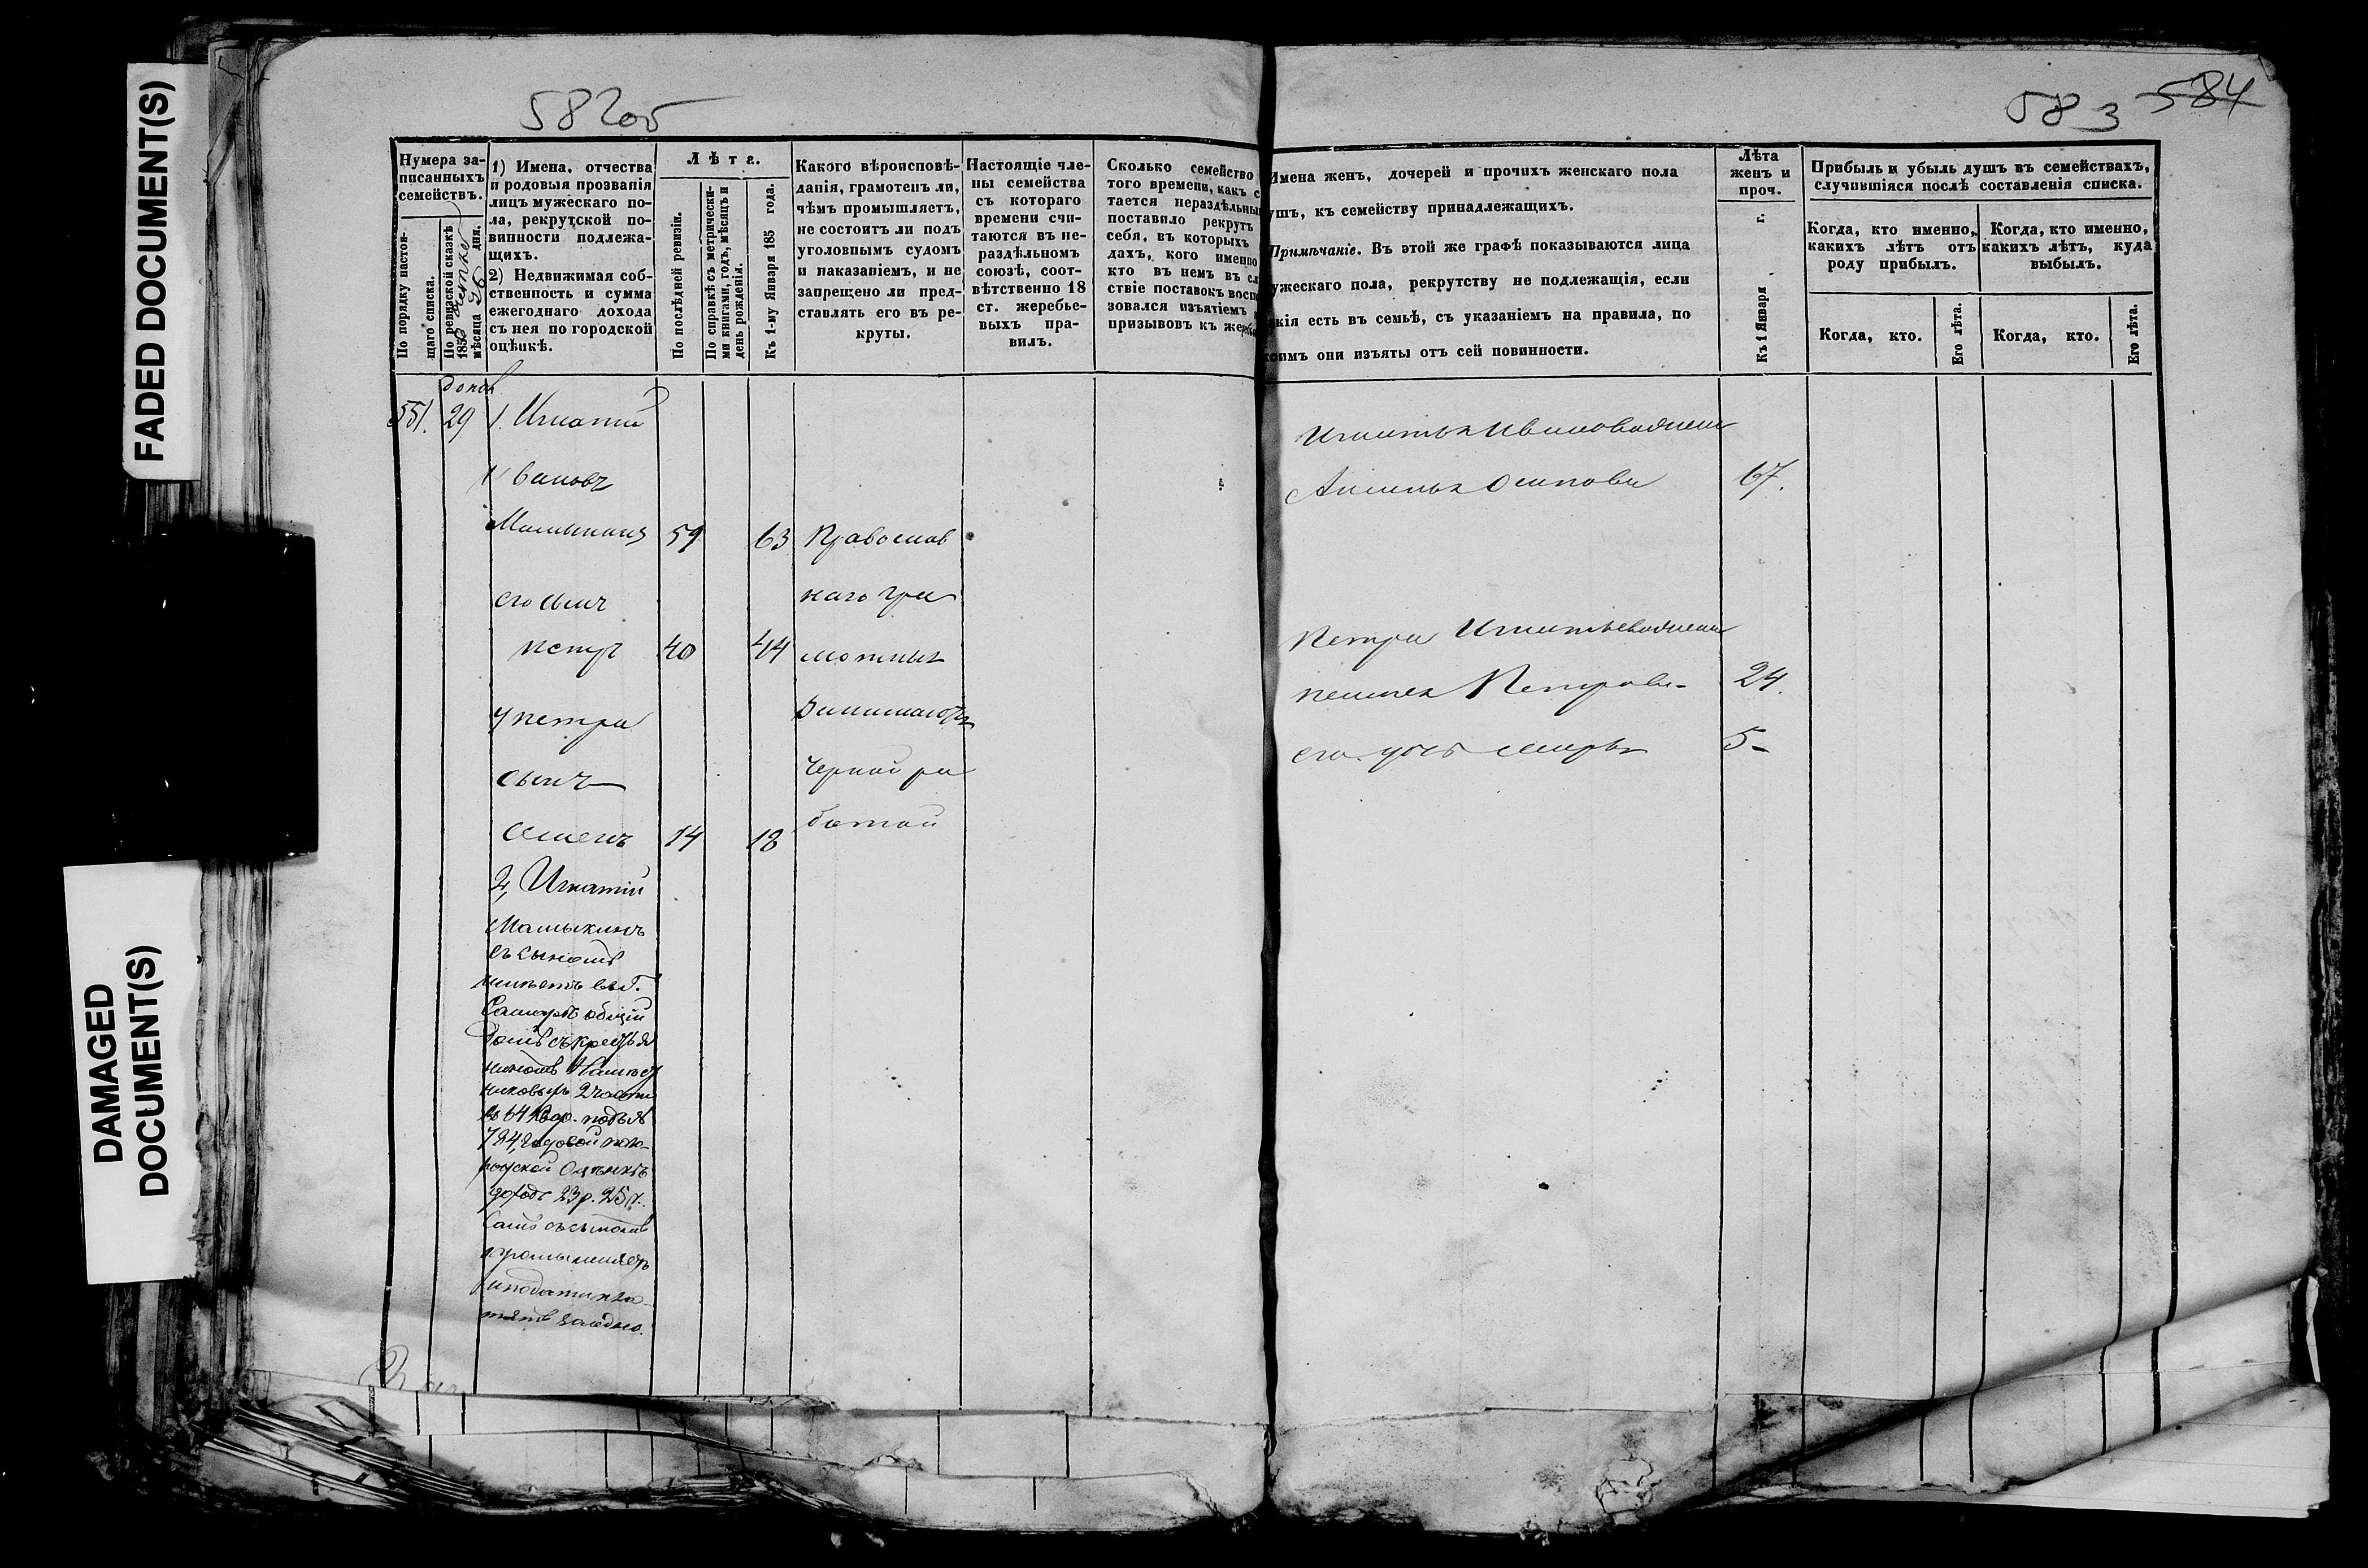 FADED DOCUMENT(S)
DAMAGED
DOCUMENT(S)
582об
Нумера за-
писанныхъ
семействъ.
По порядку настоя-
щаго списка.
По ревизской сказкѣ
185
мѣсяца 26 дня.
1) Имена, отчества
и родовыя прозванія
лицъ мужескаго по-
ла, рекрутской по-
винности подлежа-
щихъ.
2) Недвижимая соб-
ственность и сумма
ежегоднаго дохода
съ нея по городской
оцѣнкѣ.
Лѣта.
По послѣдней ревизіи.
По справкѣ съ метрически-
ми книгами, годъ, мѣсяцъ и
день рожденія.
Къ 1-му Января 185 года.
Какого вѣроисповѣ-
данія, грамотенъ ли,
чѣмъ промышляетъ,
не состоитъ ли подъ
уголовнымъ судомъ
и наказаніемъ, и не
запрещено ли пред-
ставлять его въ ре-
круты.
Настоящіе чле-
ны семейства
съ котораго
времени счи-
таются въ не-
раздѣльномъ
союзѣ, соот-
вѣтственно 18
ст. жеребье-
выхъ пра-
вилъ.
Сколько семейство
того времени, какъ с
тается нераздѣльны
поставило рекрутъ
себя, въ которыхъ
дахъ, кого именно
кто въ немъ въ сл
ствіе поставокъ восп
зовался изъятіемъ
призывовъ къ жереб
551. 29 1. Игнатій
Ивановъ
Малыкинъ 59 63 Православ
его сынъ наго гра
Петръ 40 44 мотны
у Петра занимаются
сынъ черной ра
Семенъ 14 18 ботой
2, Игнатій
Малыкинъ
съ сыномъ
имѣетъ въ г.
Самарѣ общій
домъ съ крестья
ниномъ
2 части
въ 64 Квар. подъ №
784, годовой по го-
родской оцѣнкѣ
доходъ 23 р. 25 к.
Самъ съ сыномъ
промышляетъ
и подати пла-
тятъ заодно.
583 584
Имена женъ, дочерей и прочихъ женскаго пола
ушъ, къ семейству принадлежащихъ.
Примѣчаніе. Въ этой же графѣ показываются лица
ужескаго пола, рекрутству не подлежащія, если
акія есть въ семьѣ, съ указаніемъ на правила, по
коимъ они изъяты отъ сей повинности.
Лѣта
женъ и
проч.
Къ 1 Января г.
Прибыль и убыль душъ въ семействахъ,
случившіяся послѣ составленія списка.
Когда, кто именно,
какихъ лѣтъ отъ
роду прибылъ.
Когда, кто именно,
какихъ лѣтъ, куда
выбылъ.
Когда, кто.
Его лѣта.
Когда, кто.
Его лѣта.
Игнатья Иванова жена
Осипова 67.
Петра Игнатьева жена
Петрова 24.
его дочь Марья 5